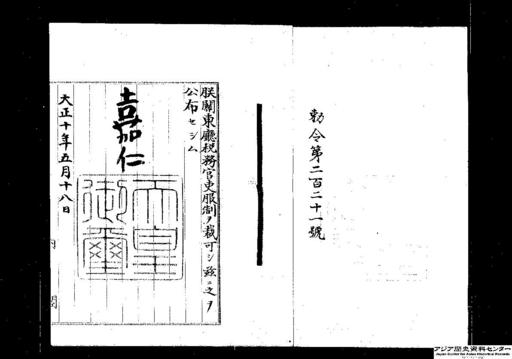 勅令第二百二十一號
朕關東廳税務官吏服制ヲ裁可シ茲ニ之ヲ
公布セシム
嘉仁
天皇
御璽
大正十年五月十八日
内閣
アジア歴史資料センター
Japan Center for Asian Historical Records